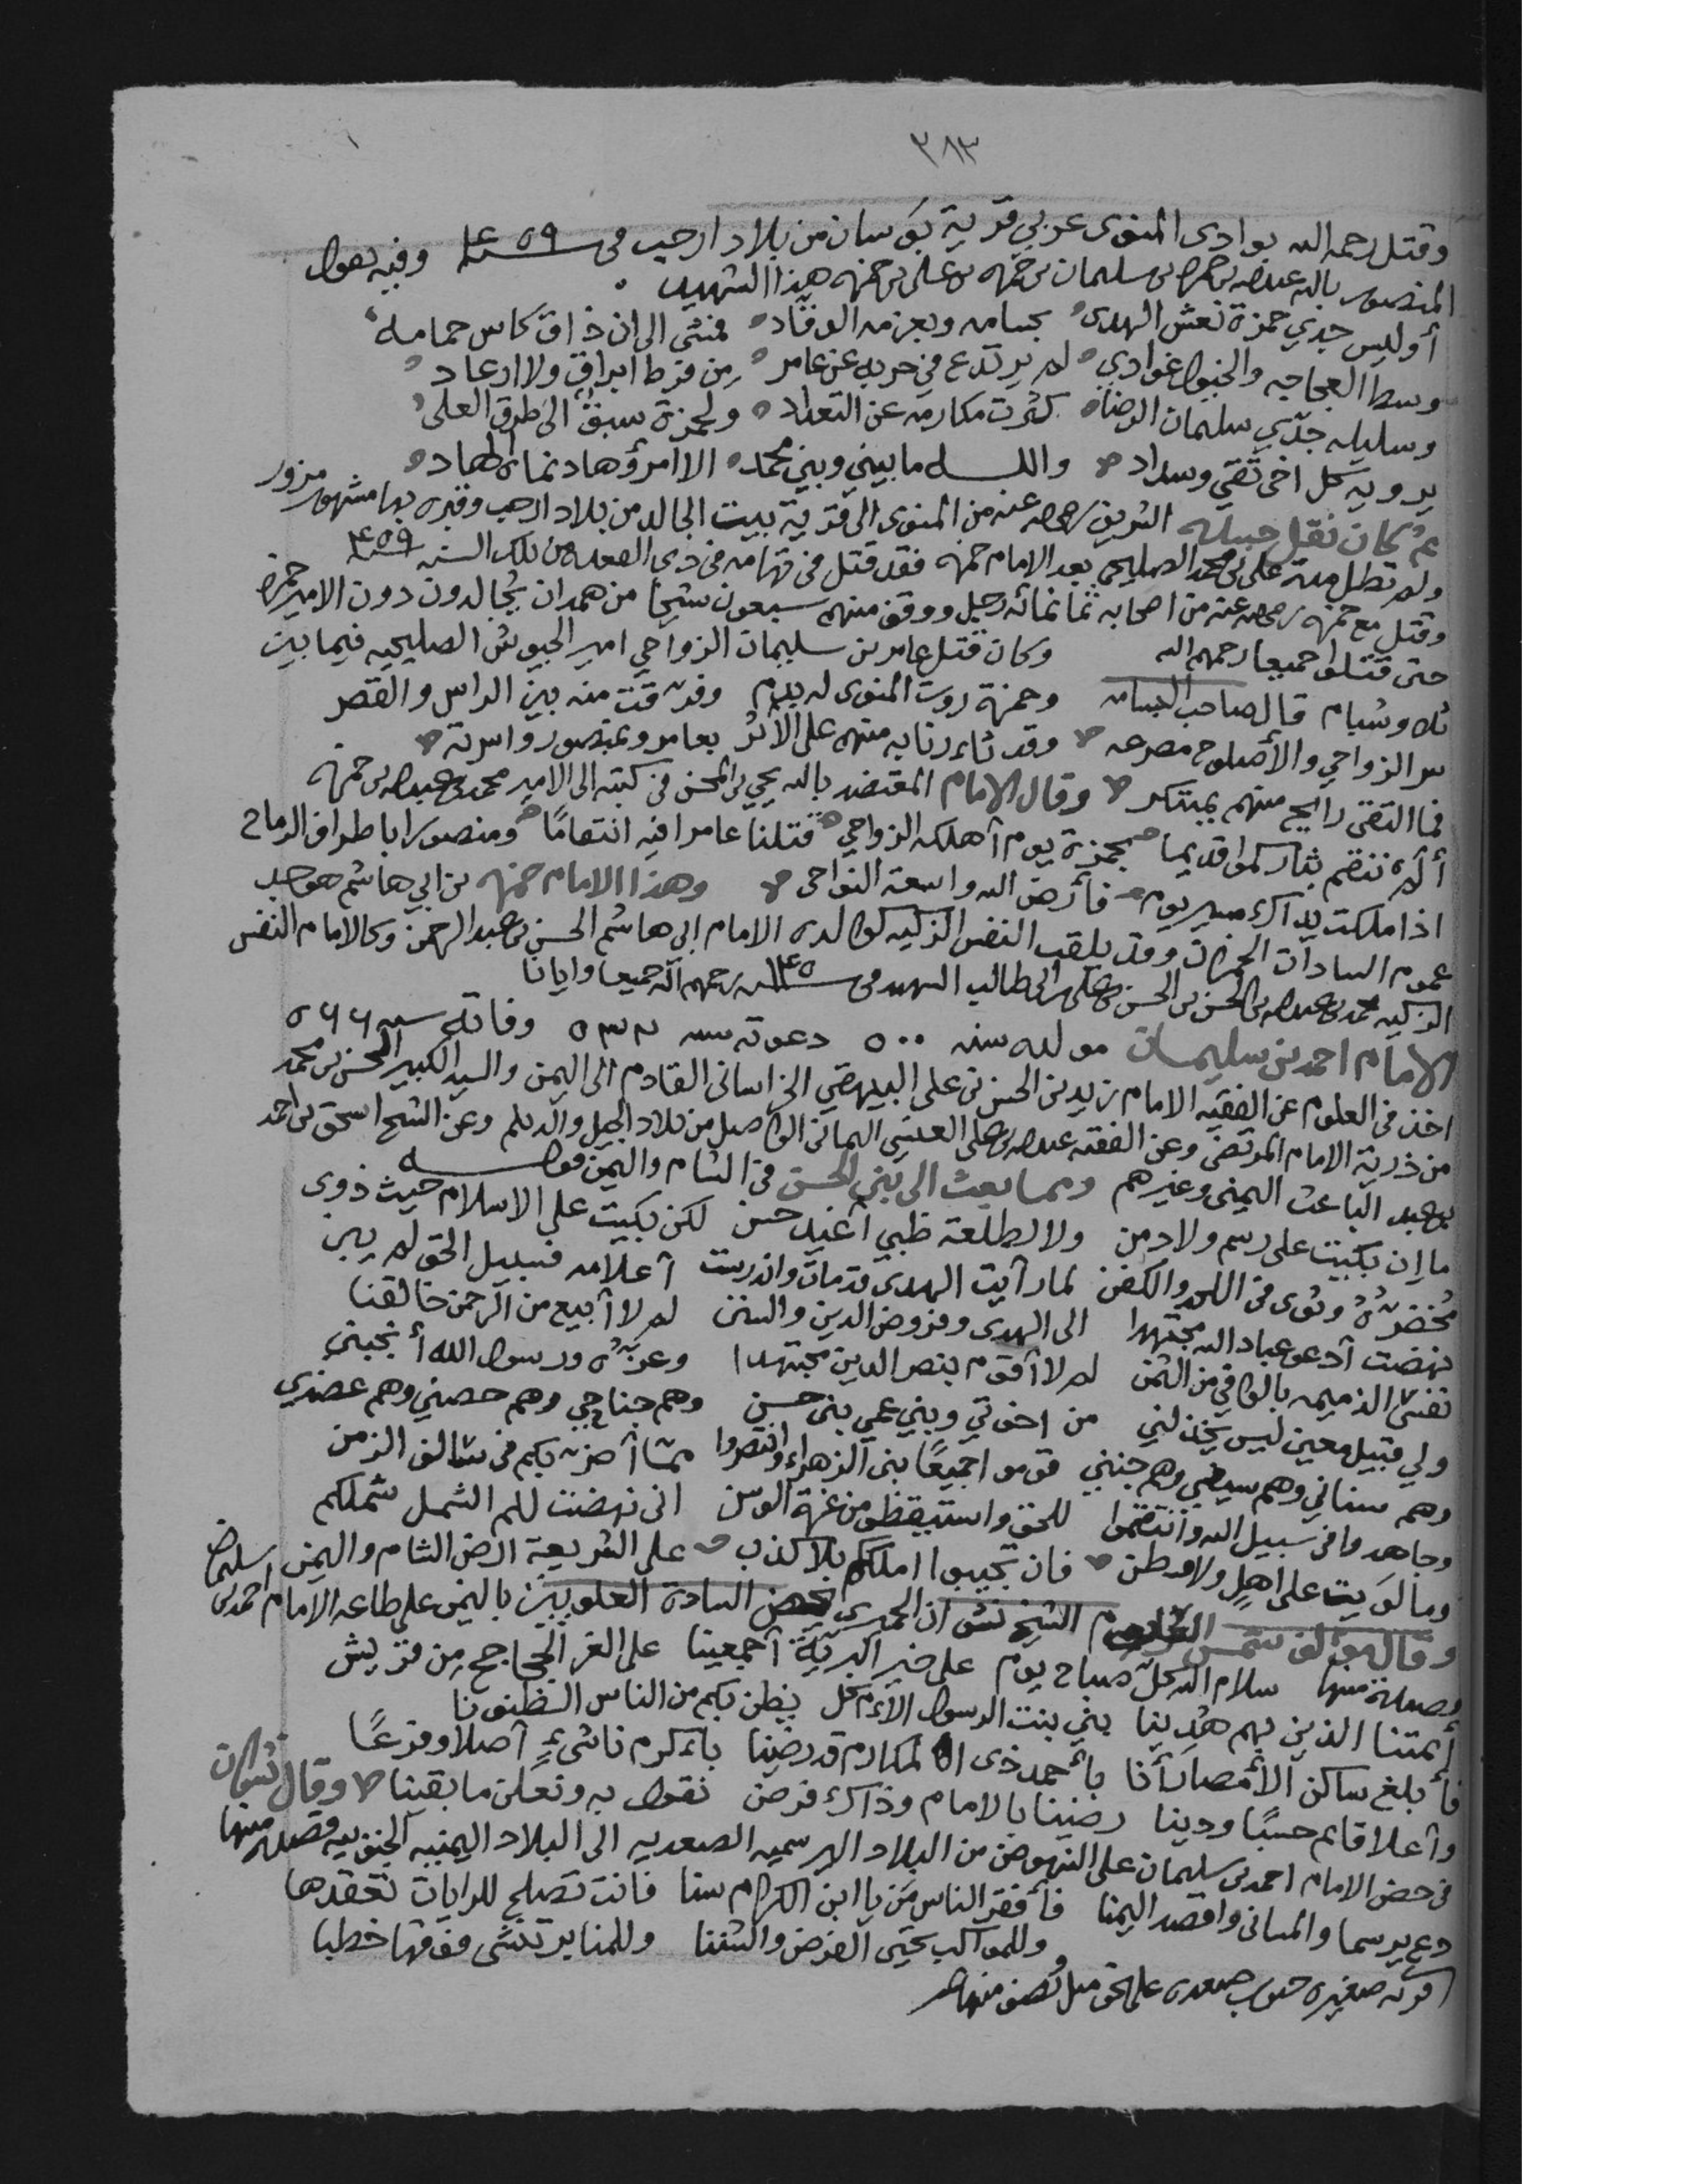 ٣٨٣
وقتل رحمه الله بوادي المنوى غربي قرية بوسان من بلاد ارحب في سنة ٤٥٩ وفيه يقول
المنصور بالله عبدالله بن حمزه بن سليمان بن حمزه بن علي بن حمزه هذا الشهيد
أوليس جدي حمزة نعش الهدى بحسامه وبعزمه الوقّاد فمشى الى ان ذاق كاس حمامه
وسط العجاجه والخيول غوادي لم يرتدع في حربه عن عامر من فرط ابراق ولا ارعاد
وسليله جدّي سليمان الرضا كثرت مكارمه عن التعداد ولحمزة سبقٌ الى طرق العلى
يرويه كل اخى تقى وسداد والله ما بيني وبين محمد الا امرؤ هاد نماه الهاد
ثم كان نقل الشريف رضي الله عنه من المنوى الى قرية بيت الجالد من بلاد ارحب وقبره بها مشهور مزور
ولم تطل مدة علي بن محمد الصليحي بعد الامام حمزه فقد قتل في تهامه في ذي القعده من تلك السنه سنة ٤٥٩
وقتل مع حمزه رضي الله عنه من اصحابه ثمانمائه رجل ووقف منهم سبعون شيخا من همدان يجالدون دون الامير حمزه
حتى قتلوا جميعا رحمهم الله وكان قتل عامر بن سليمان الزواحي امير الجيوش الصليحيه فيما بين
ثلا وشبام قال صاحب البسامه وحمزة روت المنوى له بدم وفرّقت منه بين الراس والقصر
من الزواحي والأصلوح مصرعه وقد ثاءرنا به منهم على الأثر بعامر وبمنصور واسرته
فما التقى رائح منهم بمبتكر وقال الامام المعتضد بالله يحيى بن المحسن في كتبه الى الامير محمد بن عبدالله بن حمزه
ألم ننقم بثاركموا قديما بحمزة يوم أهلكه الزواحي قتلنا عامرا فيه انتقامًا ومنصورا باطراف الرماح
اذا ملكت يداك مسير يوم فأرض الله واسعة النواحي وهذا الامام حمزه بن ابي هاشم هو جد
عموم السادات الحمزات وقد يلقب النفس الزكيه كوالده الامام ابي هاشم الحسن بن عبد الرحمن وكالامام النفس
الزكيه محمد بن عبدالله بن الحسن بن الحسن بن علي بن ابي طالب الشهيد في سنة ١٤٥ رحمهم الله جميعا وايانا
الامام احمد بن سليمان مولده سنه ٥٠٠ دعوته سنه ٥٣٢ وفاته سنه ٥٦٦
اخذ في العلوم عن الفقيه الامام زيد بن الحسن بن علي البيهقي الخراساني القادم الى اليمن والسيد الكبير المحسن بن محمد
من ذرية الامام المرتضى وعن الفقيه عبدالله بن علي العنسي اليماني الواصل من بلاد الجيل والديلم وعن الشيخ اسحق بن احمد
بن عبد الباعث اليمنى وغيرهم ومما بعث الى بني الحسن في الشام واليمن قوله
ما إن بكيت على رسم ولا دمن ولا لطلعة ظبي أغيد حسن لكن بكيت على الاسلام حيث ذوى
مخضرّهُ وثوى في اللحد والكفن لما رآيت الهدى قد مات واندرست أعلامه فسبيل الحق لم يبن
نهضت أدعو عباد الله مجتهدا الى الهدى وفروض الدين والسنن لم لا أبيع من الرحمن خالقنا
نفسي الذميمه بالوافي من الثمن لم لا أقوم بنصر الدين مجتهدا وعزّه ورسول الله أنجبني
ولي قبيل معين ليس يخذلني من اخوتي وبني عمي بني حسن وهم جناحي وهم حصني وهم عضدي
وهم سناني وهم سيفي وهم جنني قوموا جميعًا بني الزهراء وانتصروا ممّا أضرّ بكم في سالف الزمن
وجاهدوا في سبيل الله وانتقموا للحق واستيقظوا من غمرة الوسن اني نهضت للم الشمل شملكم
وما لويت على اهلٍ ولا وطن فان تجيبوا املككم بلا كذب على الشريعة ارض الشام واليمن
وقال مؤلف شمس العلوم الشيخ نشوان الحميري يحض السادة العلويين باليمن على طاعه الامام احمد بن سليمان
بقصيدة منها سلام الله كلّ صباح يوم على خير البريّة أجمعينا على الغر الجحاجح من قريش
أيمتنا الذين بهم هُدينا بني بنت الرسول الأمّ كل يظن بكم من الناس الظنونا
فأبلغ ساكن الأمصار أنا بأحمد ذى المكارم قد رضينا بأكرم ناشىءٍ أصلا وفرعًا
وأعلا قائم حسبًا ودينا رضينا بالامام وذاك فرض نقول به ونعلن ما بقينا وقال نشوان
في حض الامام احمد بن سليمان على النهوض من البلاد اليرسميه الصعديه الى البلاد اليمنيه الجنوبيه قصيده منها
دع يرسما والمباني واقصد اليمنا فأفقر الناس من يا ابن الكرام سنا فانت تصلح للرايات تعقدها
وللمواكب يحيى الفرض والسننا وللمنابر تنشى فوقها خطبا
قريه صغيره جنوب صعده على نحو ميل ونصف منها